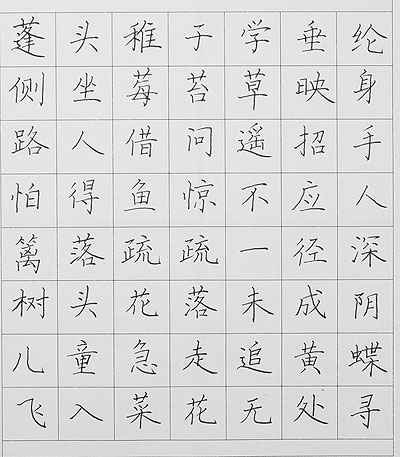 蓬头稚子学垂纶
侧坐莓苔草映身
路人借问遥招手
怕得鱼惊不应人
篱落疏疏一径深
树头花落未成阴
儿童急走追黄蝶
飞入菜花无处寻